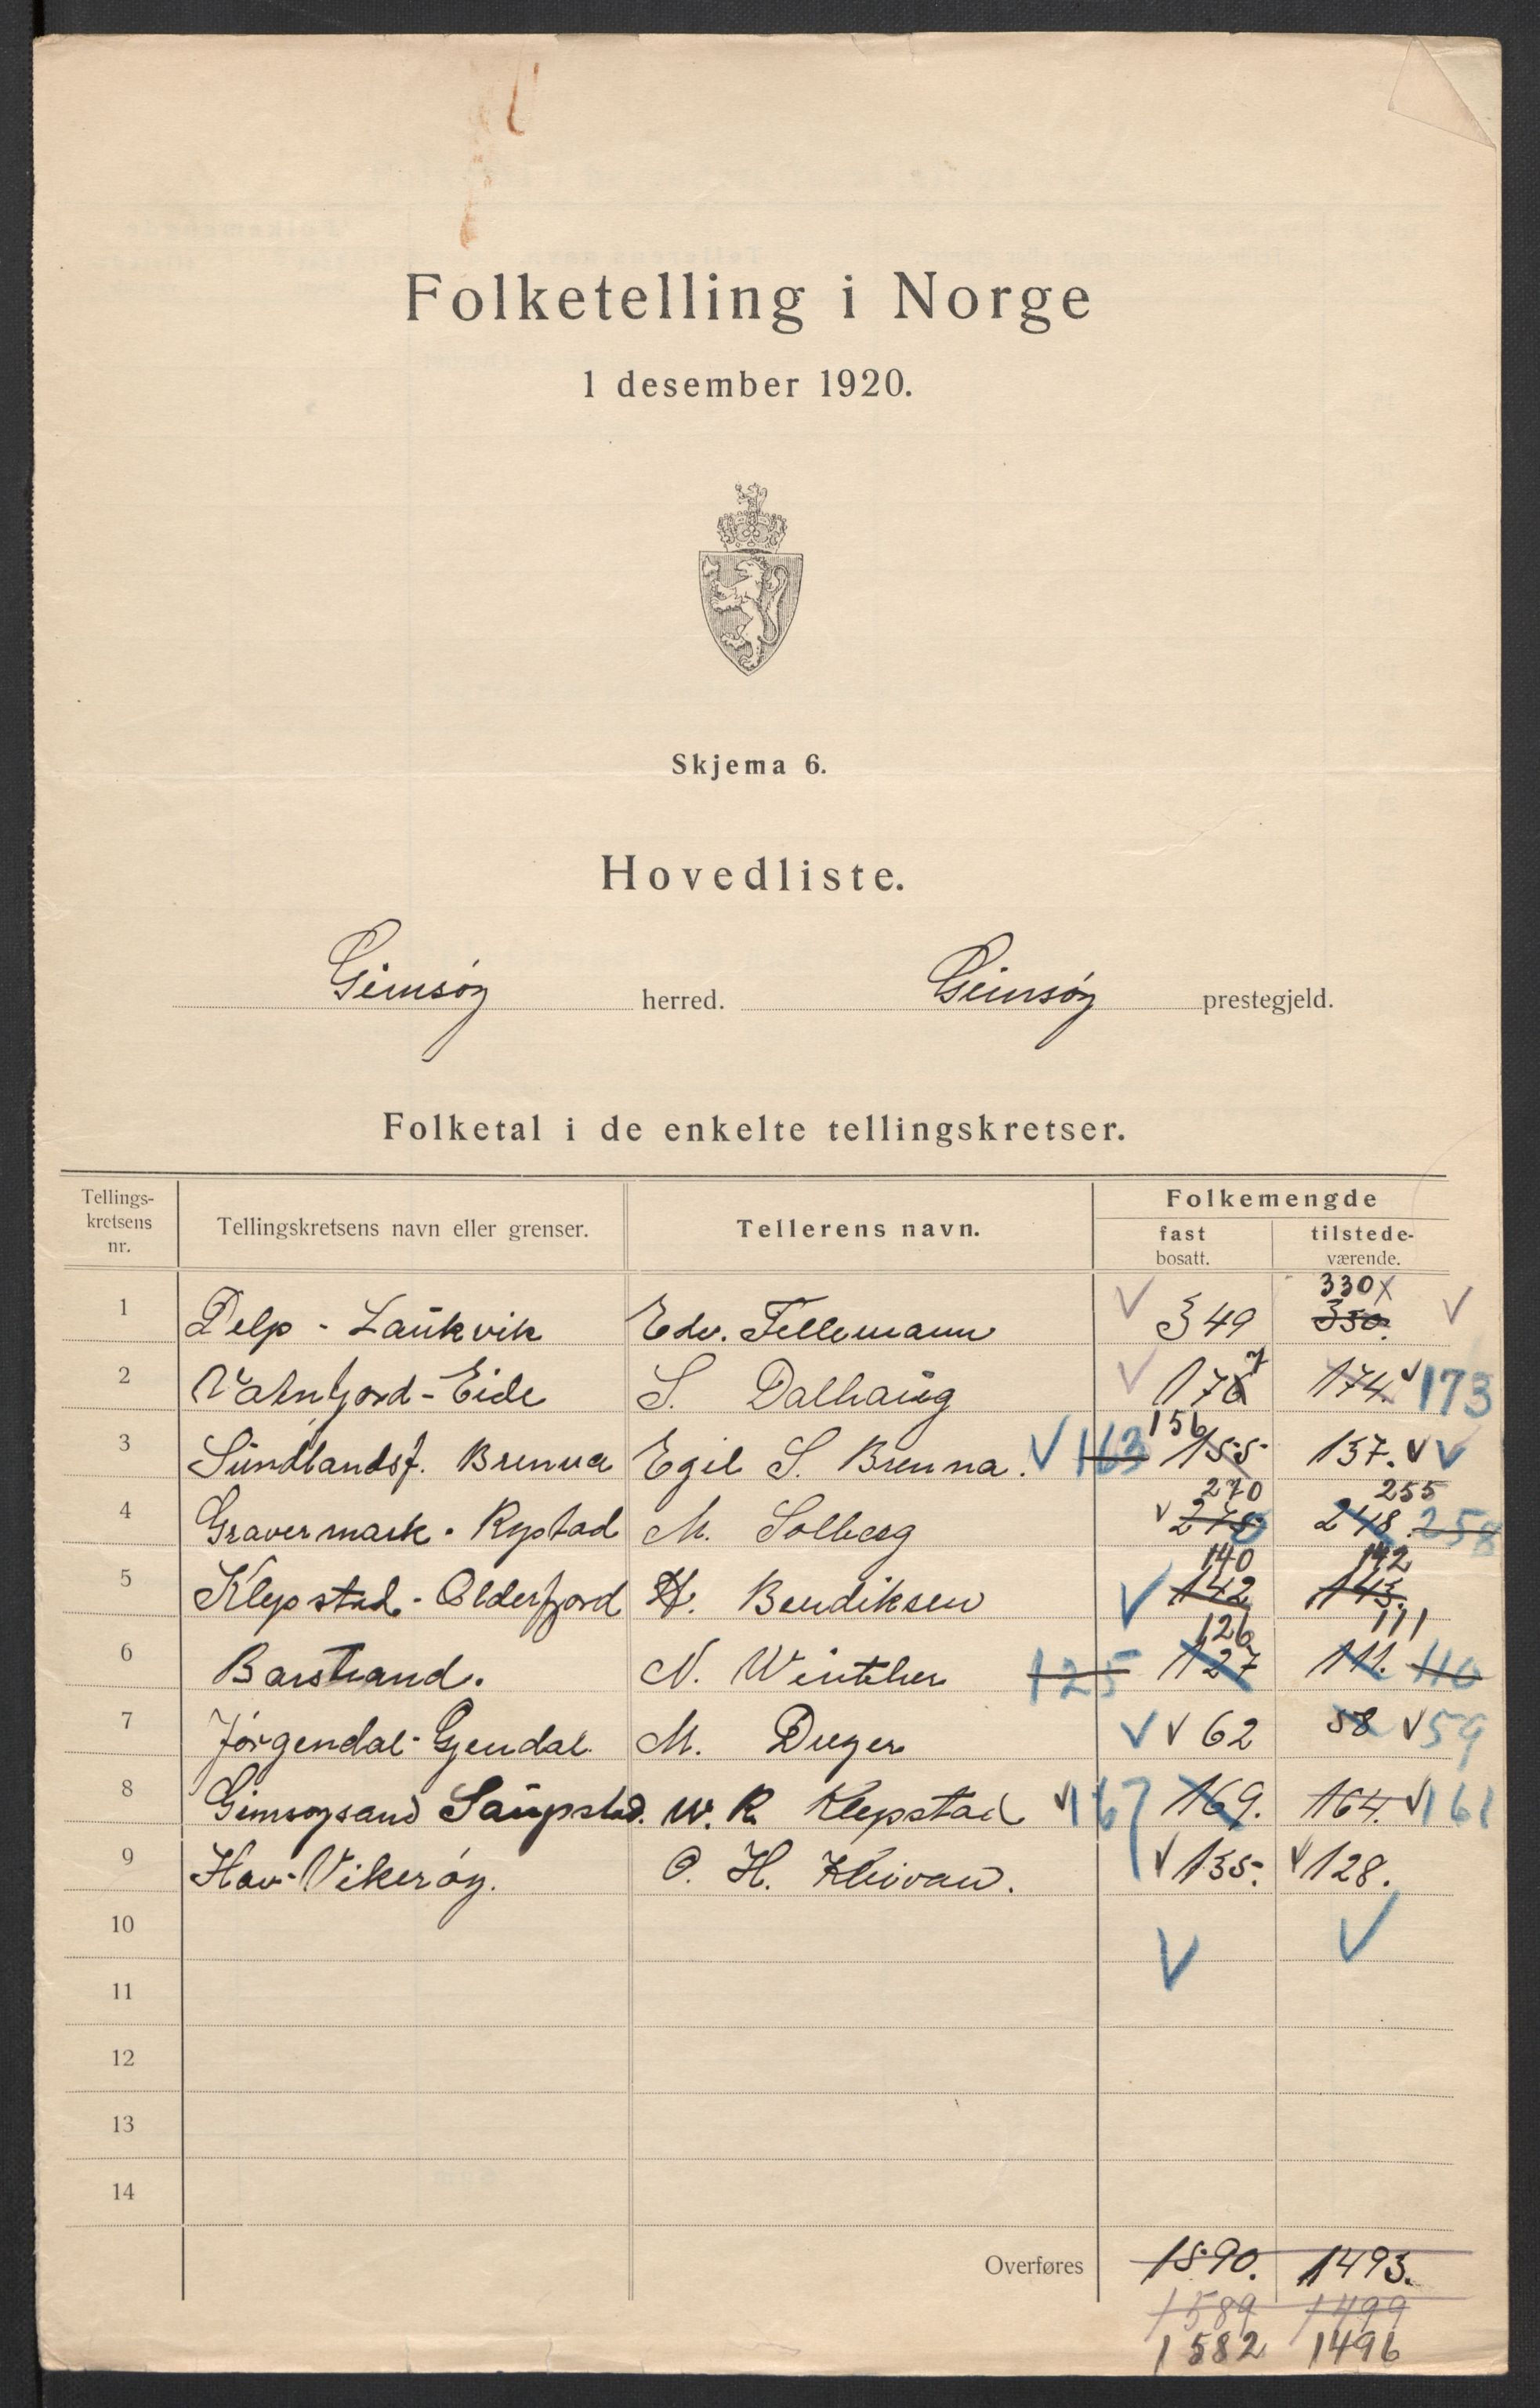 Folketelling i Norge
1 desember 1920.
Skjema 6.
Hovedliste.
Gimsøy herred. Gimsøy prestegjeld.
Folketal i de enkelte tellingskretser.
Tellings-kretsens nr. Tellingskretsens navn eller grenser. Tellerens navn. Folkemengde
fast bosatt. tilstede-værende.
330 X
1 Delp - Laukvik Edv. Tellemann √ 349 350. √
2 Vatnfjord - Eide S. Dalhaug √ 176 7 174. √ 173
156
3 Sundlandsf. Brenna Egil S. Brenna. √ 163 155 137. √ √
270 255
4 Gravermark - Rystad M. Solberg √ 248. 258
140 142
5 Klepstad - Olderfjord H. Bendiksen √ 142 143.
126 111
6 Barstrand. N. Winther 125 127 111. 110
7 Jørgendal - Gjendal M. Dreyer √ √ 62 58 √ 59
8 Gimsøysand Saupstad. W. R. Klepstad √ 167 169. 164. √ 161
9 Hov - Vikerøy. O. H. Kleivan. √ 135. √ 128.
10 √ √
11
12
13
14
Overføres 1590. 1493.
1589 1499
1582 1496